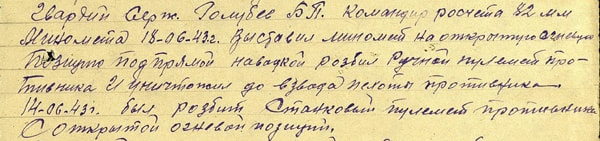 Гвардии Серж. Голубев Б.П. Командир росчета 82 мм
Миномета 13-06-43г. Выставил миномет на открытую огневую
позицию под прямой наводкой розбил Ручной пулемет про-
тивника и уничтожил до взвода пехоты противника
14-06-43г. был розбит Станковый пулемет противника
С открытой огневой позиции.